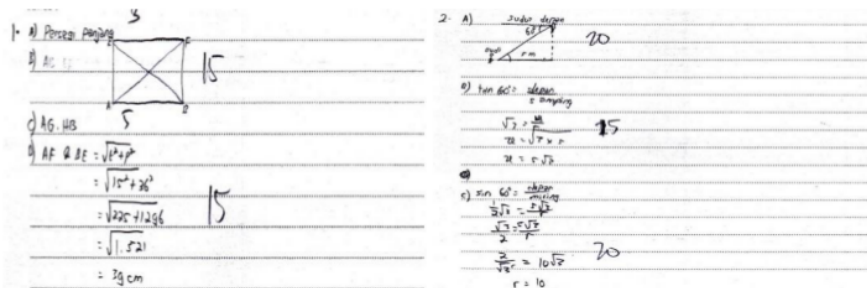 5
1. A) Persegi panjang
E F
B) AC
15
A B
5
C) AG. HB
D) AF & BE = √t²+p²
= √15²+36²
= √225+1296
15
= √1.521
= 39 cm
2. A) sudut depan
60°
20
5 m
B) tan 60° = depan
samping
√3 =
15
= √3 × 5
= 5√3
C) sin 60° = depan
miring
½√3 = 5√3
√3 = 5√3
2 r
20
= 10√3
r = 10